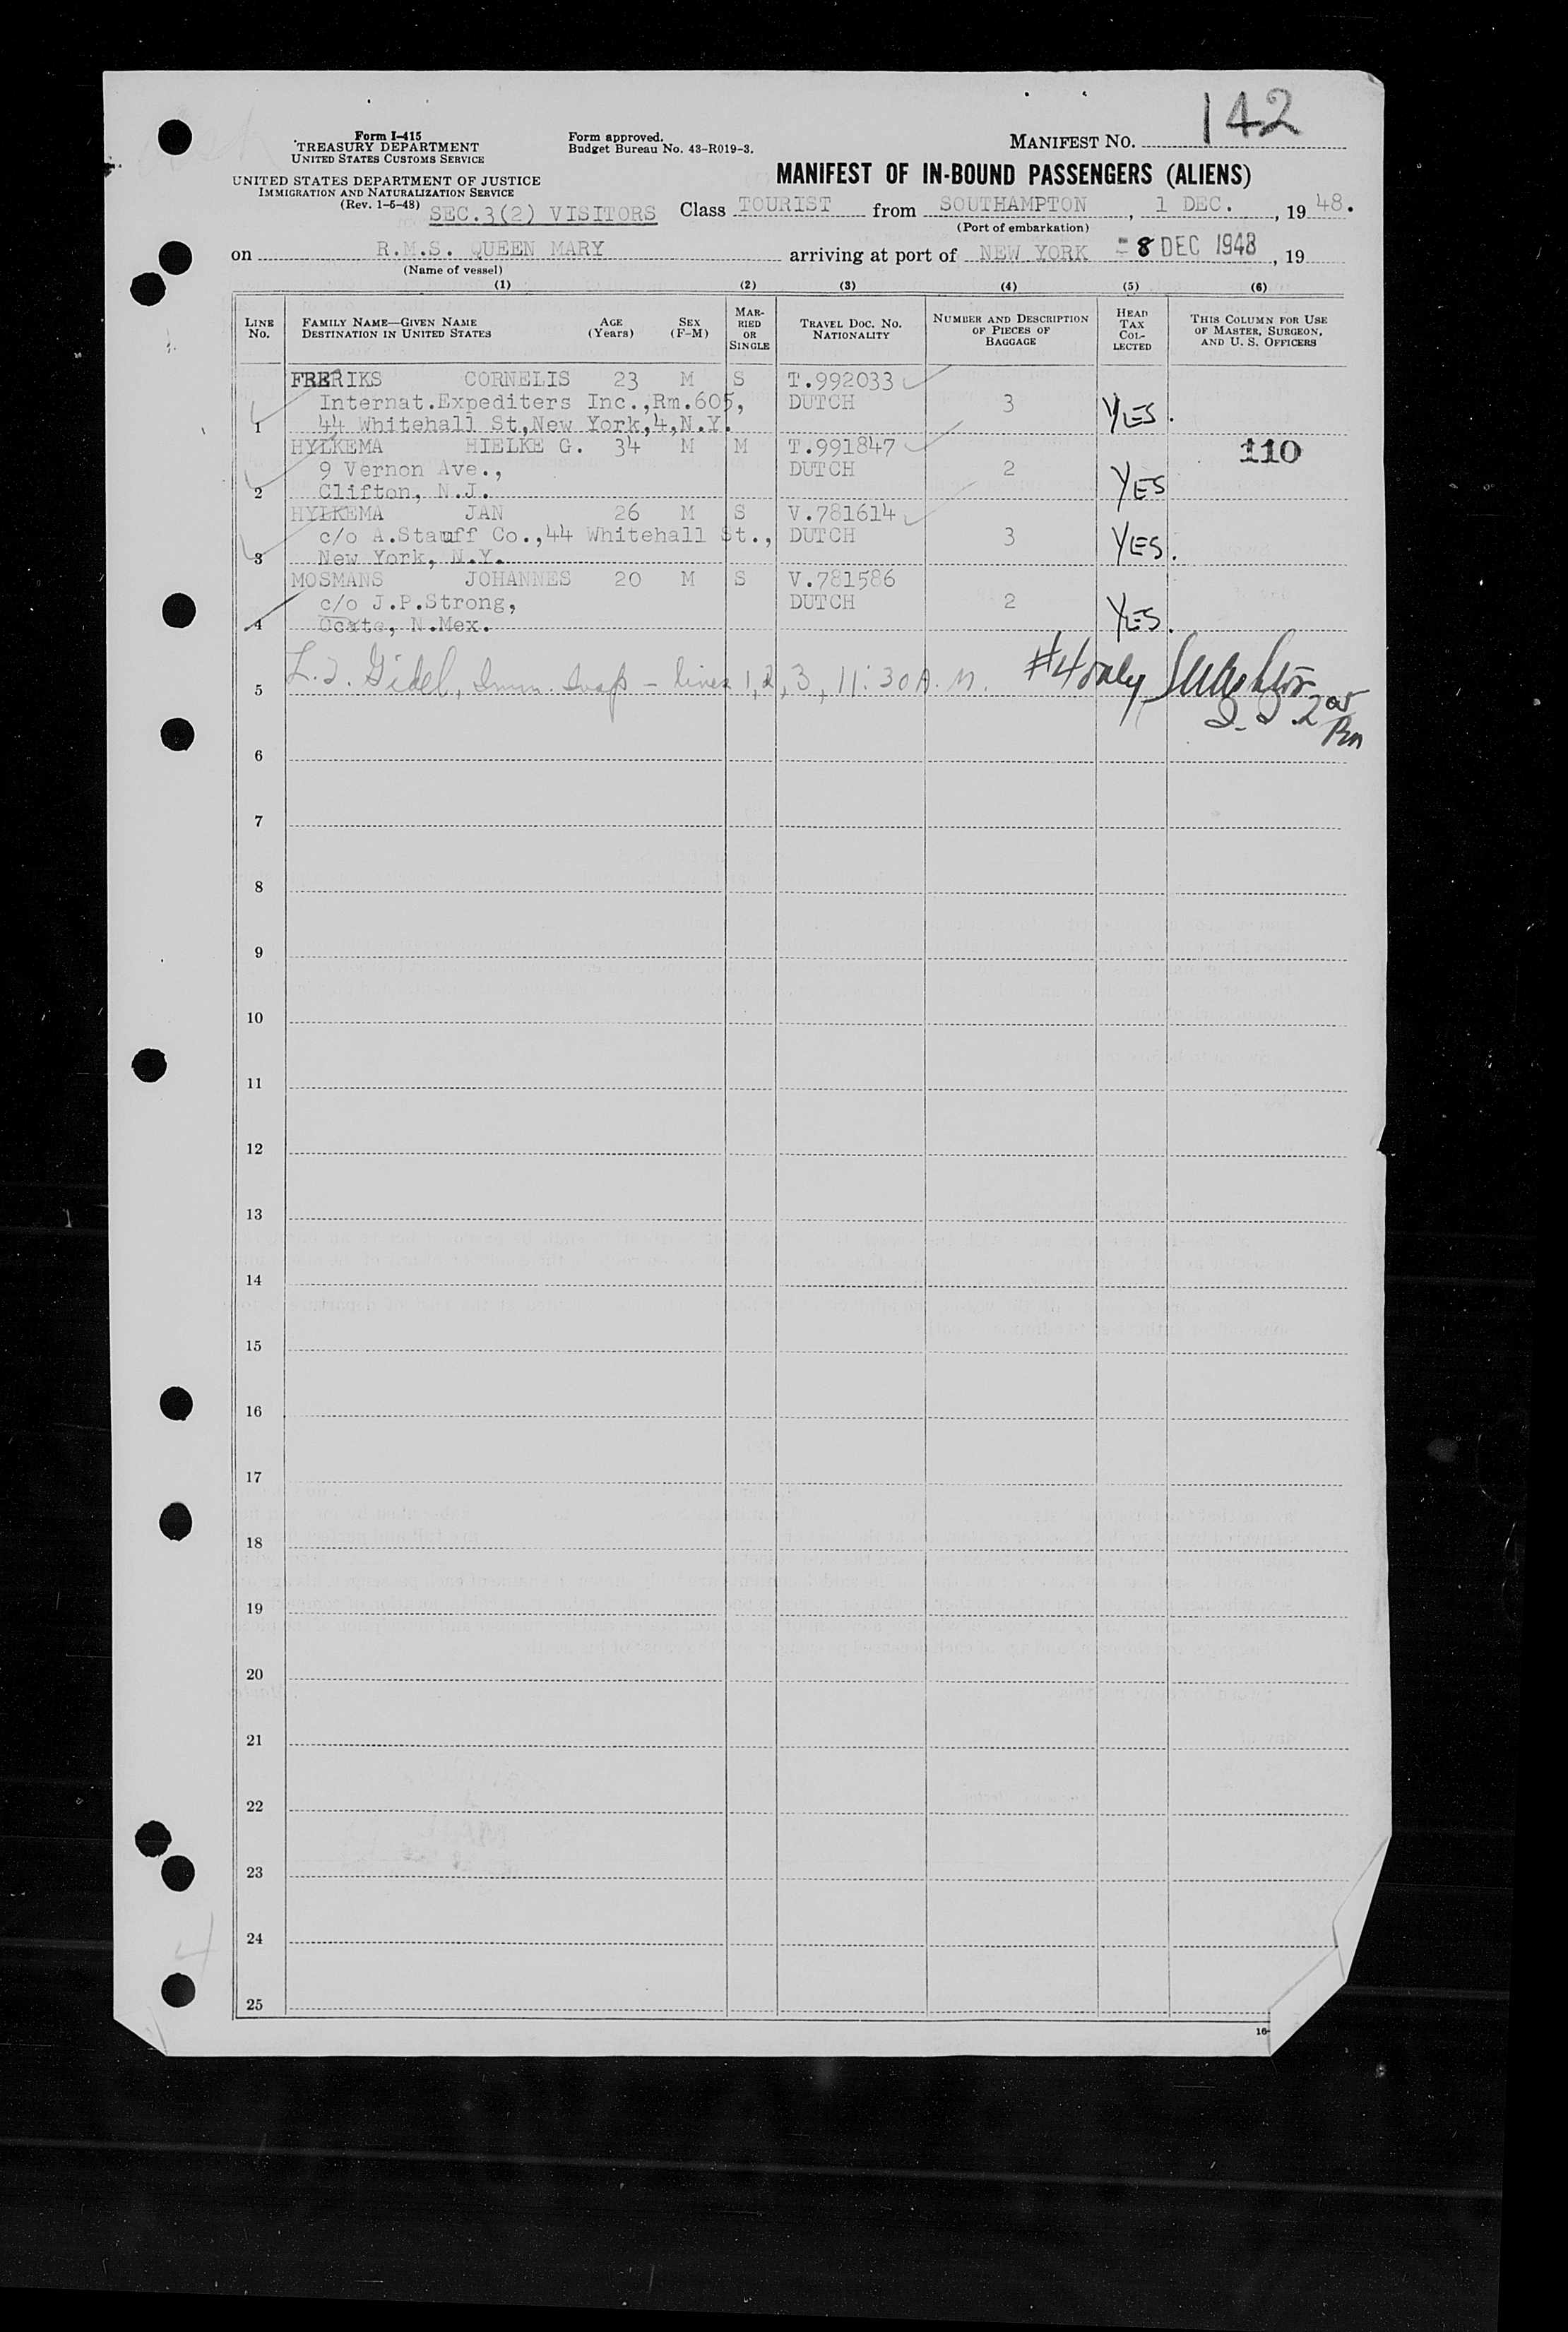 142
Form I-415
TREASURY DEPARTMENT
UNITED STATES CUSTOMS SERVICE
Form approved.
Budget Bureau No. 43-R019-3.
MANIFEST NO.
UNITED STATES DEPARTMENT OF JUSTICE
IMMIGRATION AND NATURALIZATION SERVICE
(Rev. 1-6-48)
MANIFEST OF IN-BOUND PASSENGERS (ALIENS)
SEC.3(2) VISITORS Class TOURIST from SOUTHAMPTON, 1 DEC., 19 48.
(Port of embarkation)
on R.M.S. QUEEN MARY arriving at port of NEW YORK -8 DEC 1948, 19
(Name of vessel)
(1) (2) (3) (4) (5) (6)
LINE No. FAMILY NAME—GIVEN NAME DESTINATION IN UNITED STATES AGE (Years) SEX (F-M) MARRIED OR SINGLE TRAVEL DOC. NO. NATIONALITY NUMBER AND DESCRIPTION OF PIECES OF BAGGAGE HEAD TAX COLLECTED THIS COLUMN FOR USE OF MASTER, SURGEON, AND U. S. OFFICERS
FRERIKS CORNELIS 23 M S T.992033
Internat.Expediters Inc.,Rm.605, DUTCH 3 YES.
1 44 Whitehall St,New York,4,N.Y.
HYLKEMA HIELKE G. 34 M M T.991847 110
9 Vernon Ave., DUTCH 2 YES
2 Clifton, N.J.
HYLKEMA JAN 26 M S V.781614
c/o A.Stauff Co.,44 Whitehall St., DUTCH 3 YES.
3 New York, N.Y.
MOSMANS JOHANNES 20 M S V.781586
c/o J.P.Strong, DUTCH 2 YES.
4 Ocate, N.Mex.
5 Gidel, Imm. Insp - lines 1,2,3, 11:30 A.M. #4 only
6
7
8
9
10
11
12
13
14
15
16
17
18
19
20
21
22
23
24
25
16-
4